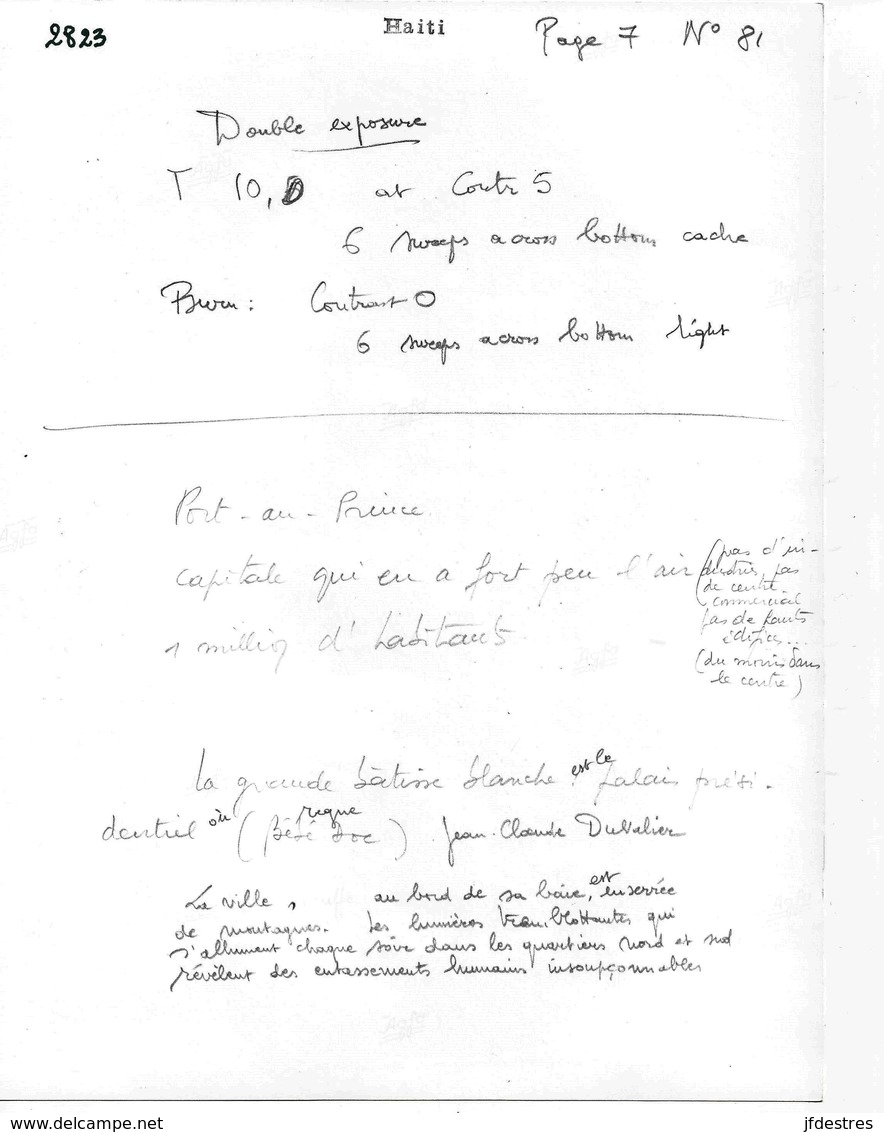 2823
Haiti
Page 7 N° 81
Double exposure
T 10, at Contr 5
6 sweeps across bottom cache
Burn : Contrast 0
6 sweeps across bottom light
Port-au-Prince
capitale qui en a fort peu l'air
1 million d'habitants
(pas d'in-
dustries, pas
de centre
commercial
pas de hauts
édifices...
(du moins dans
le centre)
la grande bâtisse blanche est le palais prési-
dentiel où (Bébé Doc) règne Jean-Claude Duvalier
La ville, au bord de sa baie, est enserrée
de montagnes. Les lumières tremblottantes qui
s'allument chaque soir dans les quartiers nord et sud
révèlent des entassements humains insoupçonnables
www.delcampe.net
jfdestres